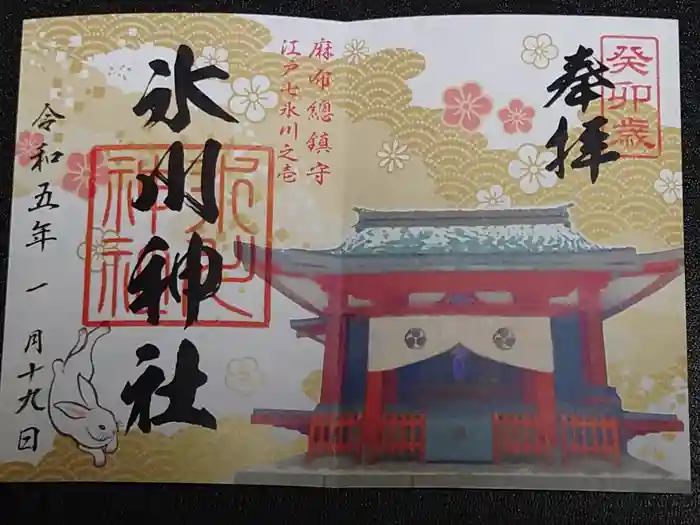 癸卯歳
奉拝
麻布總鎮守
江戸七氷川之壱
氷川神社
氷川神社
令和五年一月十九日